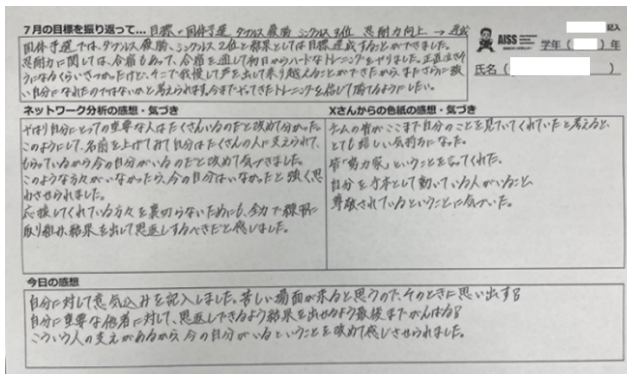 7月の目標を振り返って... 目標→国体予選 ダブルス優勝 シングルス2位 忍耐力向上 → 達成
国体予選では、ダブルス優勝、シングルス2位と結果としては目標達成することができました。
忍耐力に関しては、合宿もあって、合宿を通して初日からハードなトレーニングをやりました。正直泣きそ
うになるくらいきつかったけど、そこで我慢して声を出して乗り越えることができたから、またさらに強
い自分になれたのではないかと考えられます。今までやってきたトレーニングを信じて勝てるようにしたい。
AISS
記入
学年( )年
氏名( )
ネットワーク分析の感想・気づき
やはり自分にとっての重要な人はたくさんいるのだと改めて分かった。
このようにして、名前を上げてみて自分はたくさんの人に支えられて
もらっているから今の自分がいるのだと改めて気づきました。
このような方々がいなかったら、今の自分はいなかったと強く思
わせられました。
応援してくれている方々を裏切らないためにも、全力で練習に
取り組み、結果を出して恩返しするべきだと感じました。
Xさんからの色紙の感想・気づき
チームの皆がここまで自分のことを見ていてくれていたと考えると、
とても嬉しい気持ちになった。
皆「努力家」ということを言ってくれた。
自分を手本として動いている人がいること、
尊敬されているということに気づいた。
今日の感想
自分に対して意気込みを記入しました。苦しい場面が来ると思うので、そのときに思い出する
自分に重要な他者に対して、恩返しできるよう結果を出せるよう最後までがんばる!
こういう人の支えがあるから、今の自分がいるということを改めて感じさせられました。